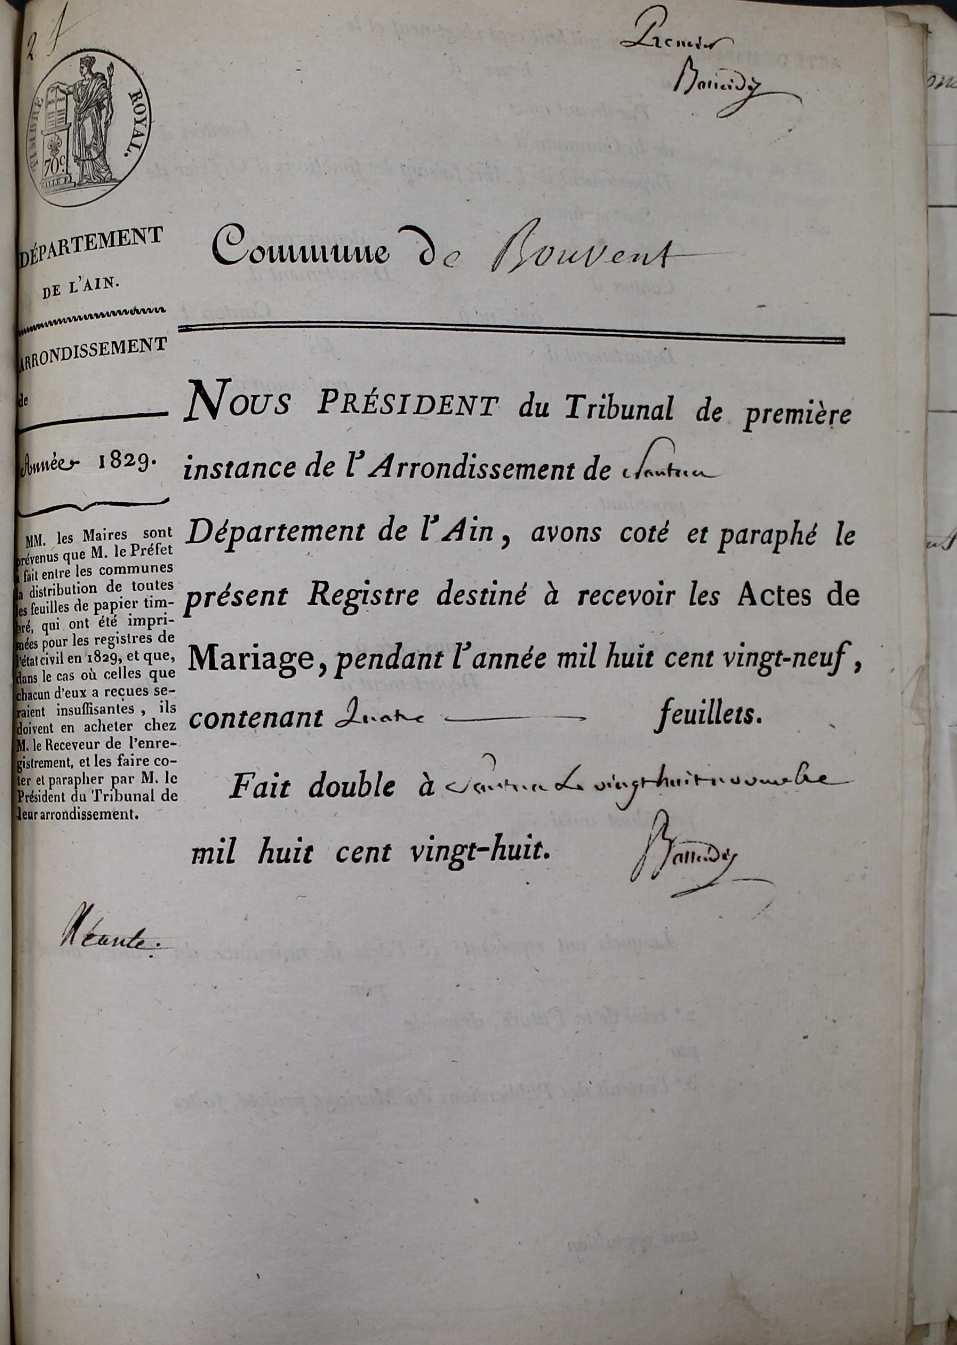 2 f
Premier
TIMBRE ROYAL.
70c
DÉPARTEMENT
DE L'AIN.
Commune De Bouvent
ARRONDISSEMENT
de
Année 1829.
MM. les Maires sont
prévenus que M. le Préfet
a fait entre les communes
la distribution de toutes
les feuilles de papier tim-
bré, qui ont été impri-
mées pour les registres de
l'état civil en 1829, et que,
dans le cas où celles que
chacun d'eux a reçues se-
raient insuffisantes, ils
doivent en acheter chez
M. le Receveur de l'enre-
gistrement, et les faire co-
ter et parapher par M. le
Président du Tribunal de
leur arrondissement.
NOUS PRÉSIDENT du Tribunal de première
instance de l'Arrondissement de Nantua
Département de l'Ain, avons coté et paraphé le
présent Registre destiné à recevoir les Actes de
Mariage, pendant l'année mil huit cent vingt-neuf,
contenant Quatre feuillets.
Fait double à Nantua Le vingt huit novembre
mil huit cent vingt-huit.
Néante.